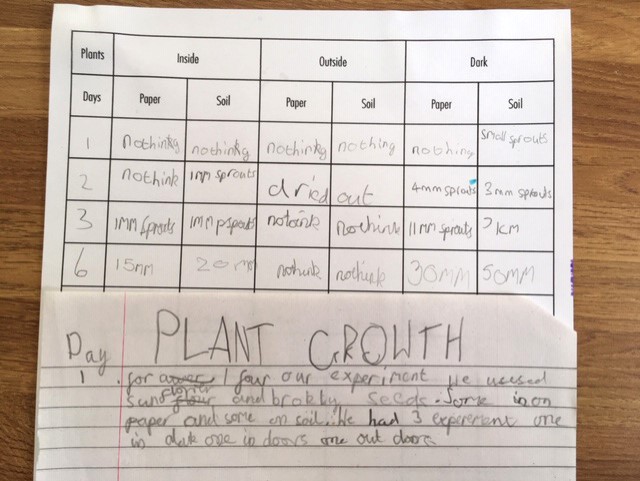 Plants Inside Outside Dark
Days Paper Soil Paper Soil Paper Soil
1 nothinkg nothinkg nothinkg nothing nothing small sprouts
2 nothink 1mm sprouts dried out 4mm sprouts 3mm sprouts
3 1MM sprouts 1MM psprouts notoink nothink 11mm sprouts KM
6 15mm 20 mm nothink nothink 30MM 50MM
PLANT GROWTH
Day
1. for / four our experiment We uesed
sun flower and brokby seeds. Some is on
paper and some on soil. We had 3 experement one
in dark one in doors one out doors